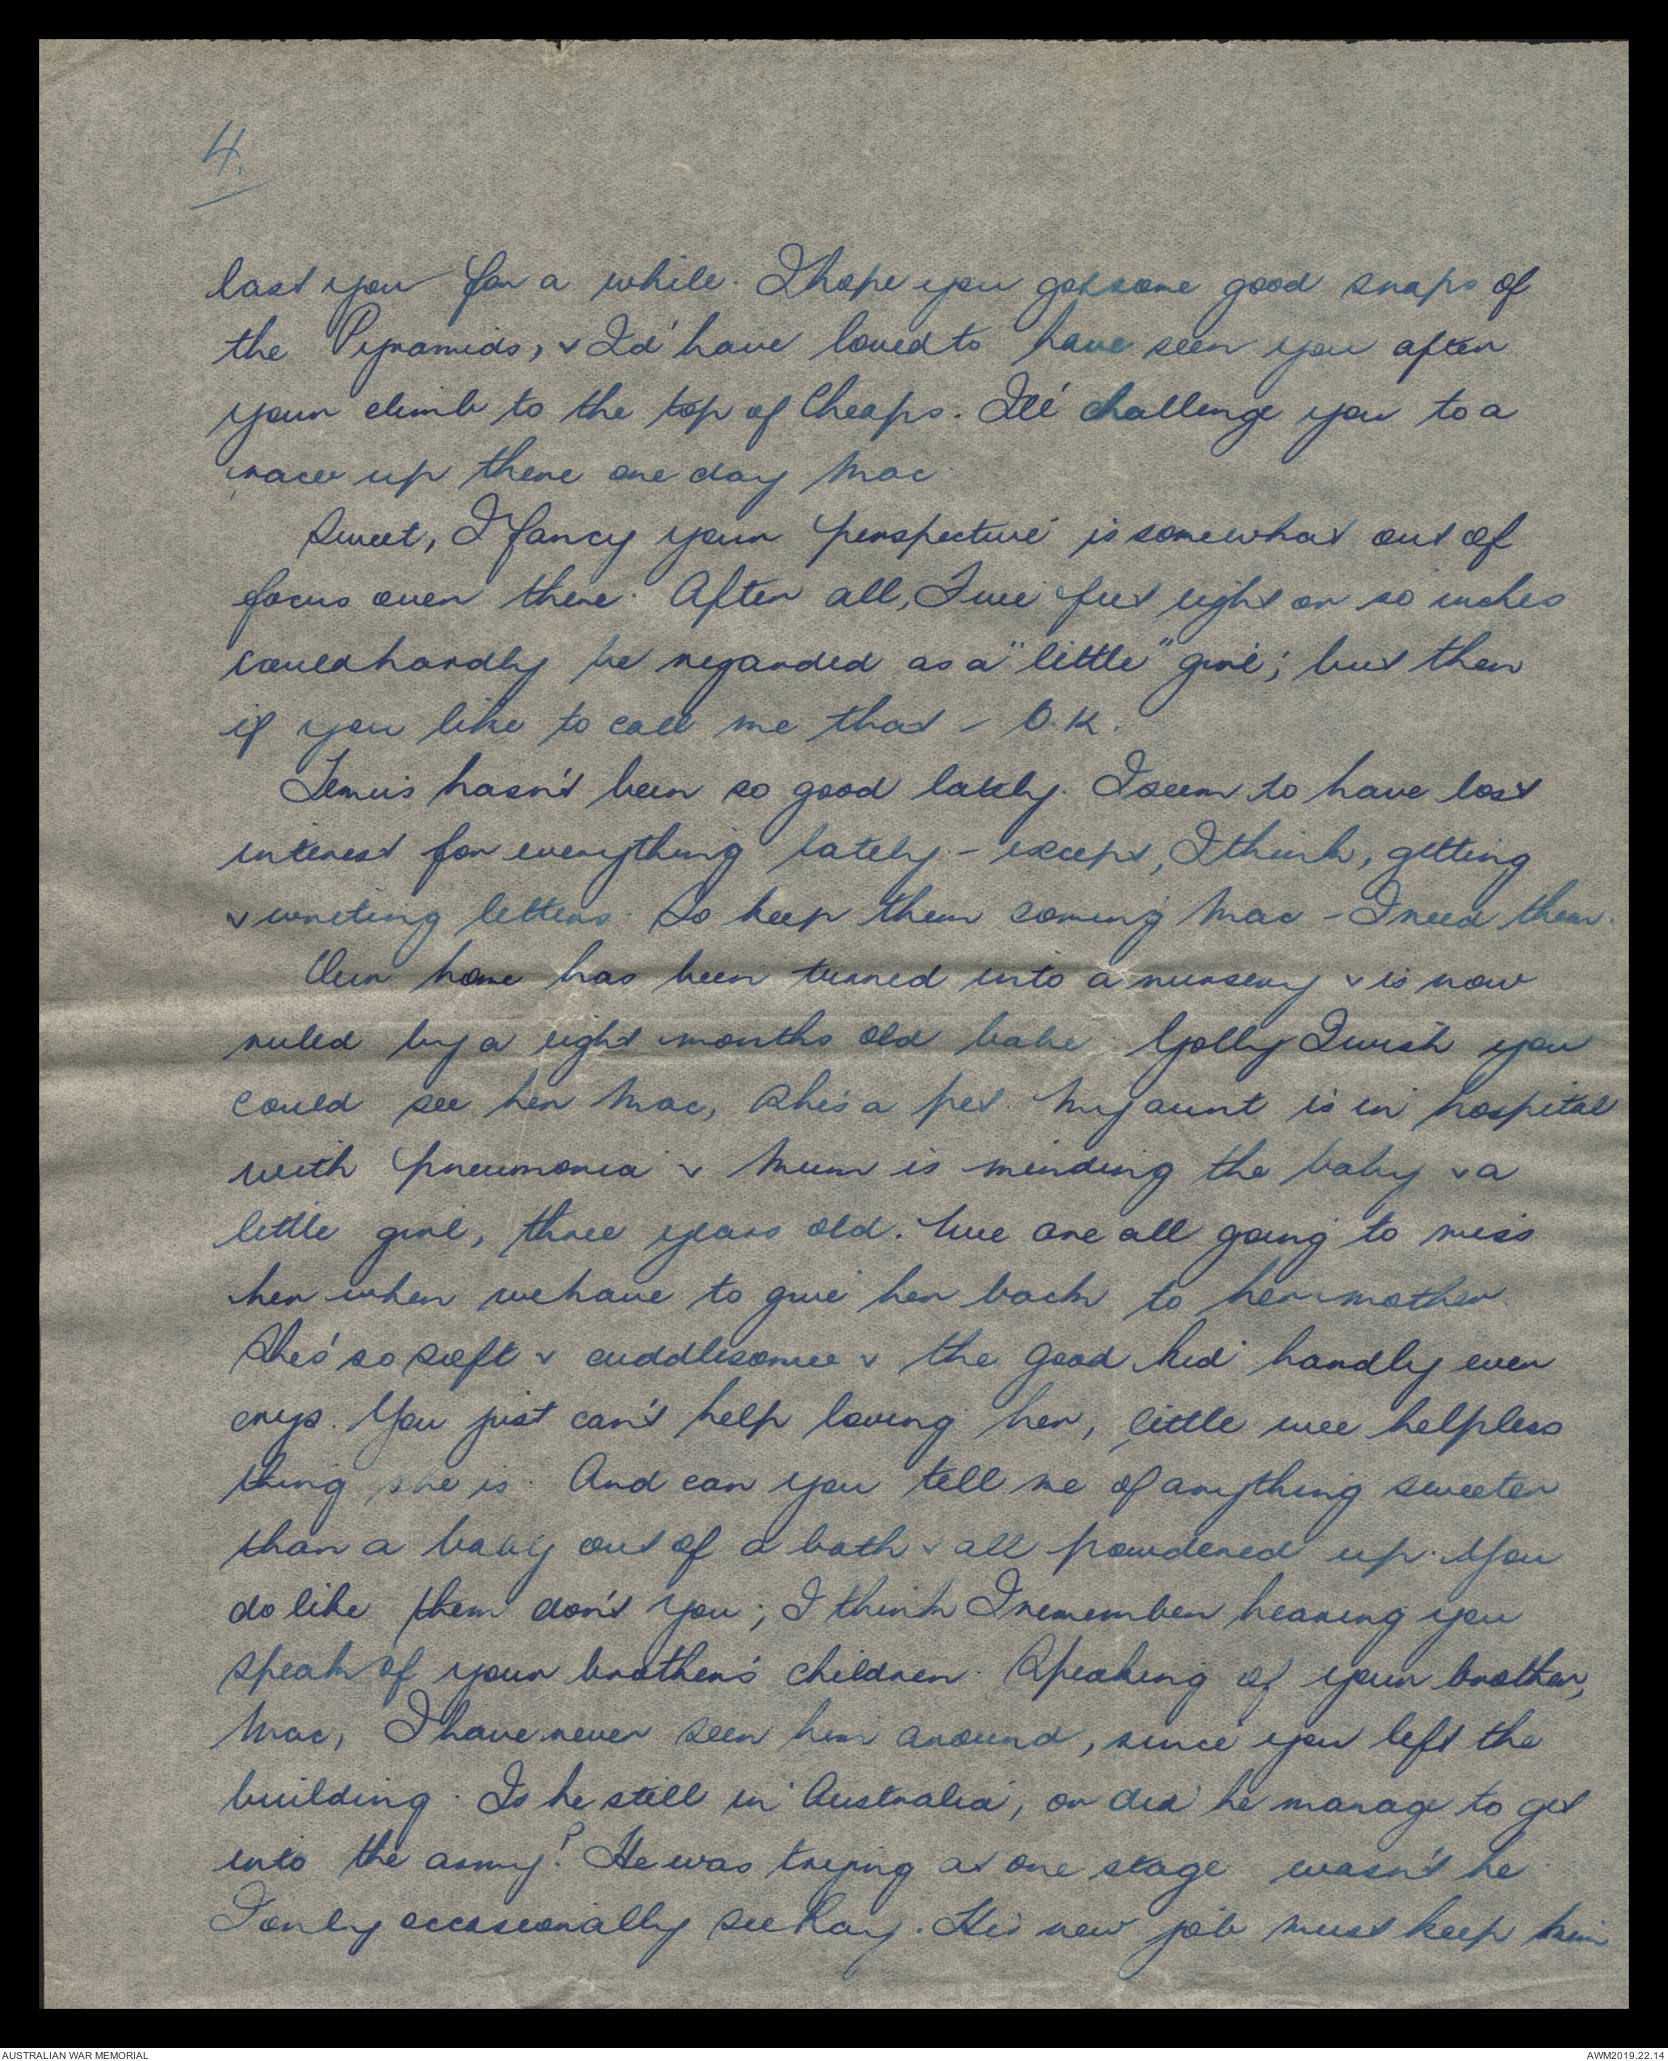 4.
last you for a while. I hope you got some good snaps of
the Pyramids, & I'd have loved to have seen you after
your climb to the top of Cheaps. I'll challenge you to a
race up there one day Mac.
Sweet, I fancy your perspective is somewhat out of
focus over there. After all, Five feet eight or so inches
could hardly be regarded as a "little" girl; but then
if you like to call me that - O.K.
Tennis hasn't been so good lately. I seem to have lost
interest for everything lately - except, I think, getting
& writing letters. So keep them coming Mac - I need them.
Our home has been turned into a nursery & is now
ruled by a eight months old babe. Golly I wish you
could see her Mac, she's a pet. My aunt is in hospital
with pneumonia & Mum is minding the baby & a
little girl, three years old. We are all going to miss
her when we have to give her back to her mother.
She's so soft & cuddlesome & the good kid hardly ever
crys. You just can't help loving her, little wee helpless
thing she is. And can you tell me of anything sweeter
than a baby out of a bath & all powdered up. You
do like them don't you; I think I remember hearing you
speak of your brother's children. Speaking of your brother,
Mac, I have never seen him around, since you left the
building. Is he still in Australia, or did he manage to get
into the army? He was trying at one stage wasn't he.
I only occasionally see Ray. His new job must keep him
AUSTRALIAN WAR MEMORIAL
AWM2019.22.14